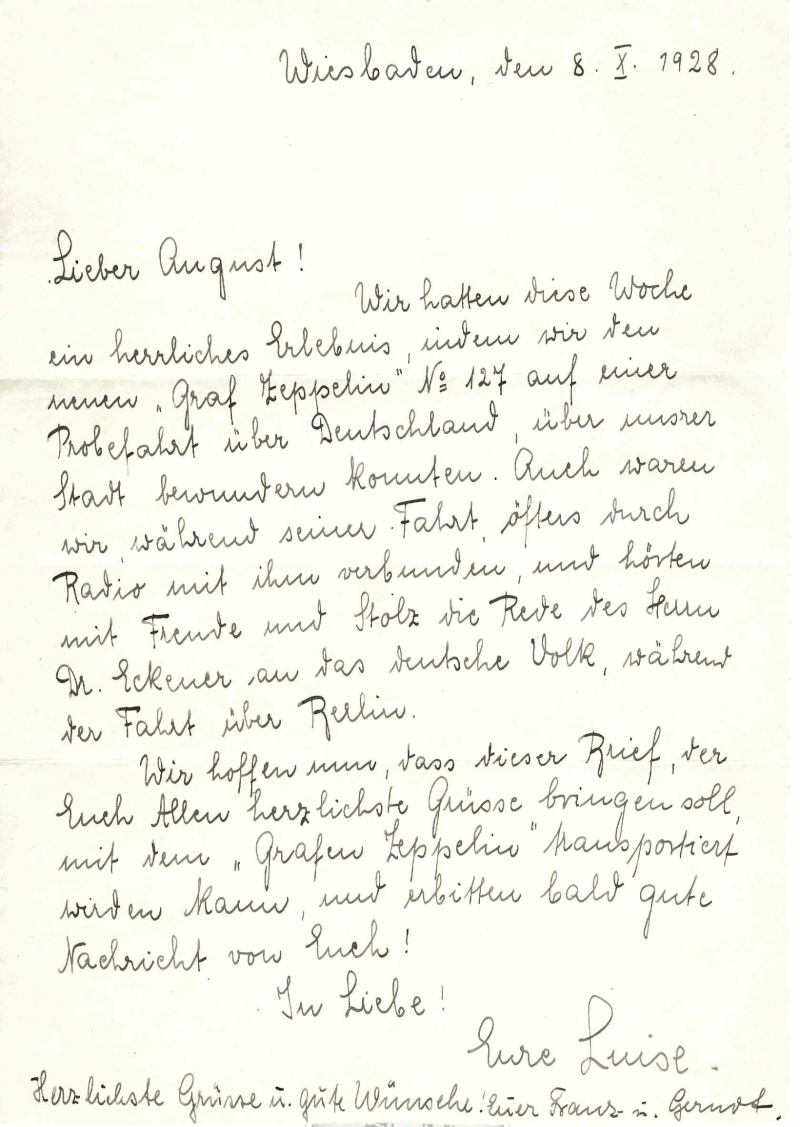 Wiesbaden, den 8. X. 1928.
Lieber August!
Wir hatten diese Woche
ein herrliches Erlebnis, indem wir den
neuen „Graf Zeppelin" No 127 auf einer
Probefahrt über Deutschland, über unsrer
Stadt bewundern konnten. Auch waren
wir, während seiner Fahrt, öfters durch
Radio mit ihm verbunden, und hörten
mit Freude und Stolz die Rede des Herrn
Dr. Eckener an das deutsche Volk, während
der Fahrt über Berlin.
Wir hoffen nun, dass dieser Brief, der
Euch Allen herzlichste Grüsse bringen soll,
mit dem „Grafen Zeppelin" transportiert
werden kann, und erbitten bald gute
Nachricht von Euch!
In Liebe!
Eure Luise.
Herzlichste Grüsse u. gute Wünsche! Euer Franz u. Gernot.